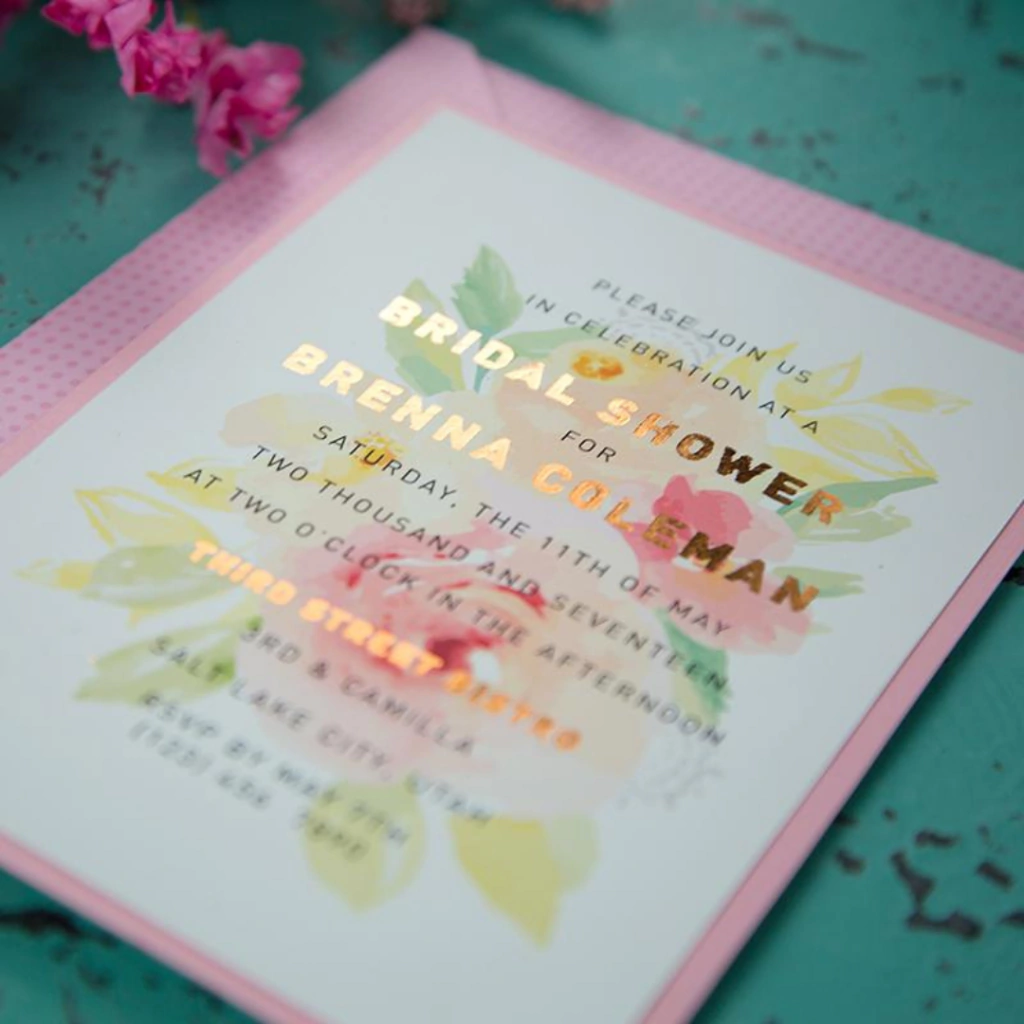 PLEASE JOIN US
IN CELEBRATION AT A
BRIDAL SHOWER
FOR
BRENNA COLEMAN
SATURDAY, THE 11TH OF MAY
TWO THOUSAND AND SEVENTEEN
AT TWO O'CLOCK IN THE AFTERNOON
THIRD STREET BISTRO
3RD & CAMILLA
SALT LAKE CITY, UTAH
RSVP BY MAY